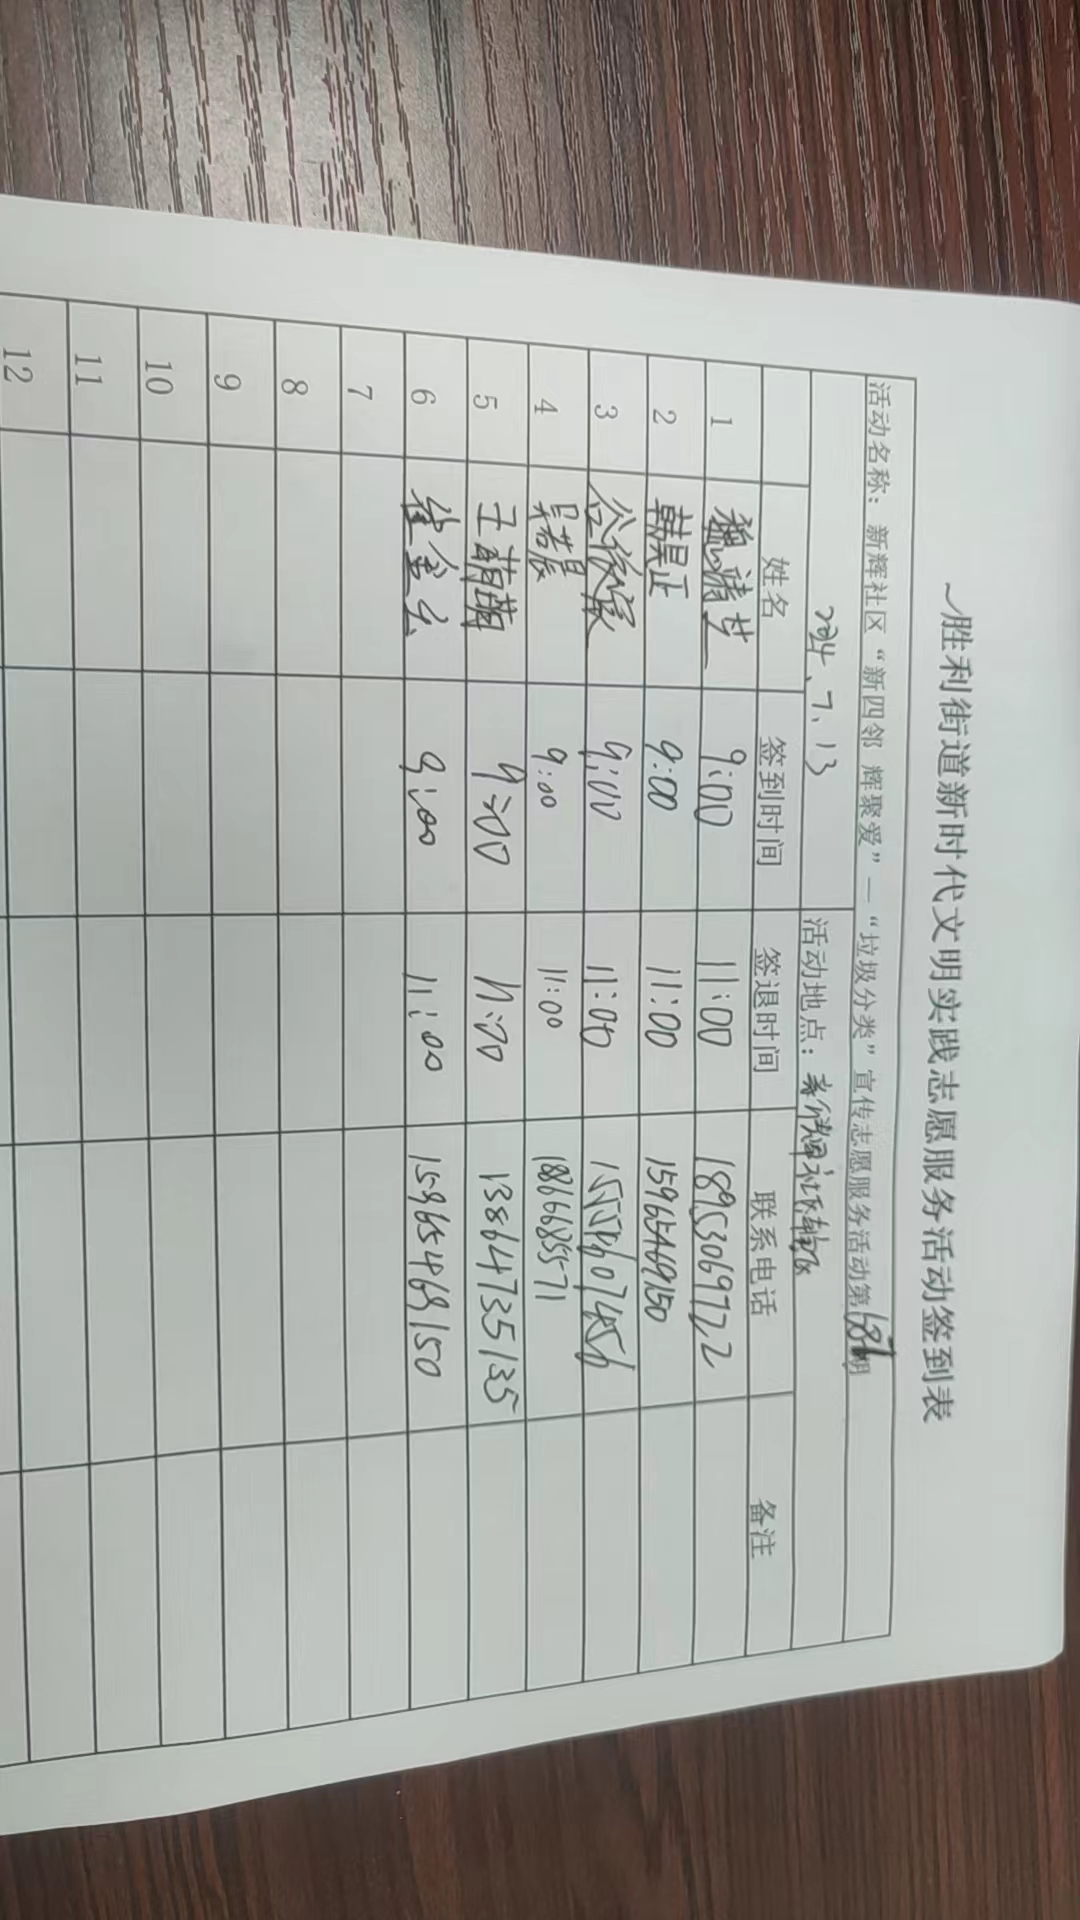 胜利街道新时代文明实践志愿服务活动签到表
活动名称：新辉社区“新四邻 辉聚爱”—“垃圾分类”宣传志愿服务活动第 期
2024、7、13 活动地点：新辉社区辖区
姓名 签到时间 签退时间 联系电话 备注
1 魏靖芝 9:00 11:00 18953069722
2 韩昊正 9:00 11:00 15965469150
3 9:00 11:00 15554607456
4 吴若晨 9:00 11:00 18866685571
5 王萌萌 9:00 11:00 13864735135
6 9:00 11:00 15965469150
7
8
9
10
11
12